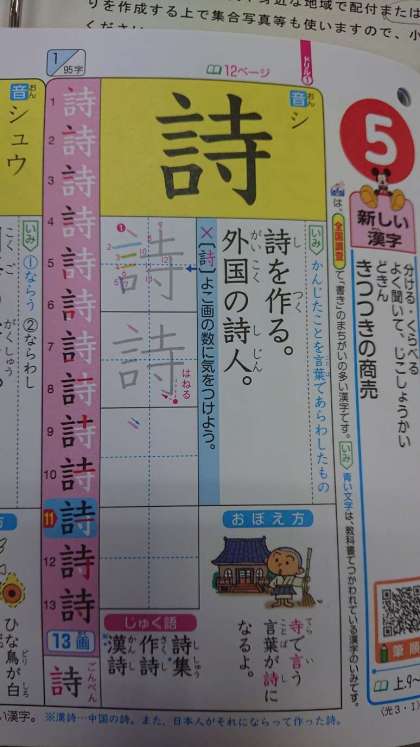 りを作成する上で集合写真等も使いますので、小
身近な地域で配付または
5
新しい
漢字
よく聞いて、じこしょうかい
どきん
きつつきの商売
全国調査
て、「書き」のまちがいの多い漢字です。
いみ
青い文字は、教科書でつかわれている漢字のいみです。
筆順
上.9〜
(光3・1)
ドリル①
12ページ
音
おん
シ
詩
いみ
かんじたことを言葉であらわしたもの
詩を作る。
し
つく
外国の詩人。
がいこく
しじん
×[詩]よこ画の数に気をつけよう。
はねる
おぼえ方
寺で言う
てら
い
言葉が詩に
ことば
し
なるよ。
じゅく語
詩集
ししゅう
作詩
さくし
漢詩
かんし
1
95字
1
2
3
4
5
6
7
8
9
10
11
12
13
詩
13画
詩
ごんべん
音
おん
シュウ
いみ
①ならう ②ならわし
がくしゅう
ひな鳥が白
どり
しろ
い漢字。
※漢詩…中国の詩。また、日本人がそれにならって作った詩。